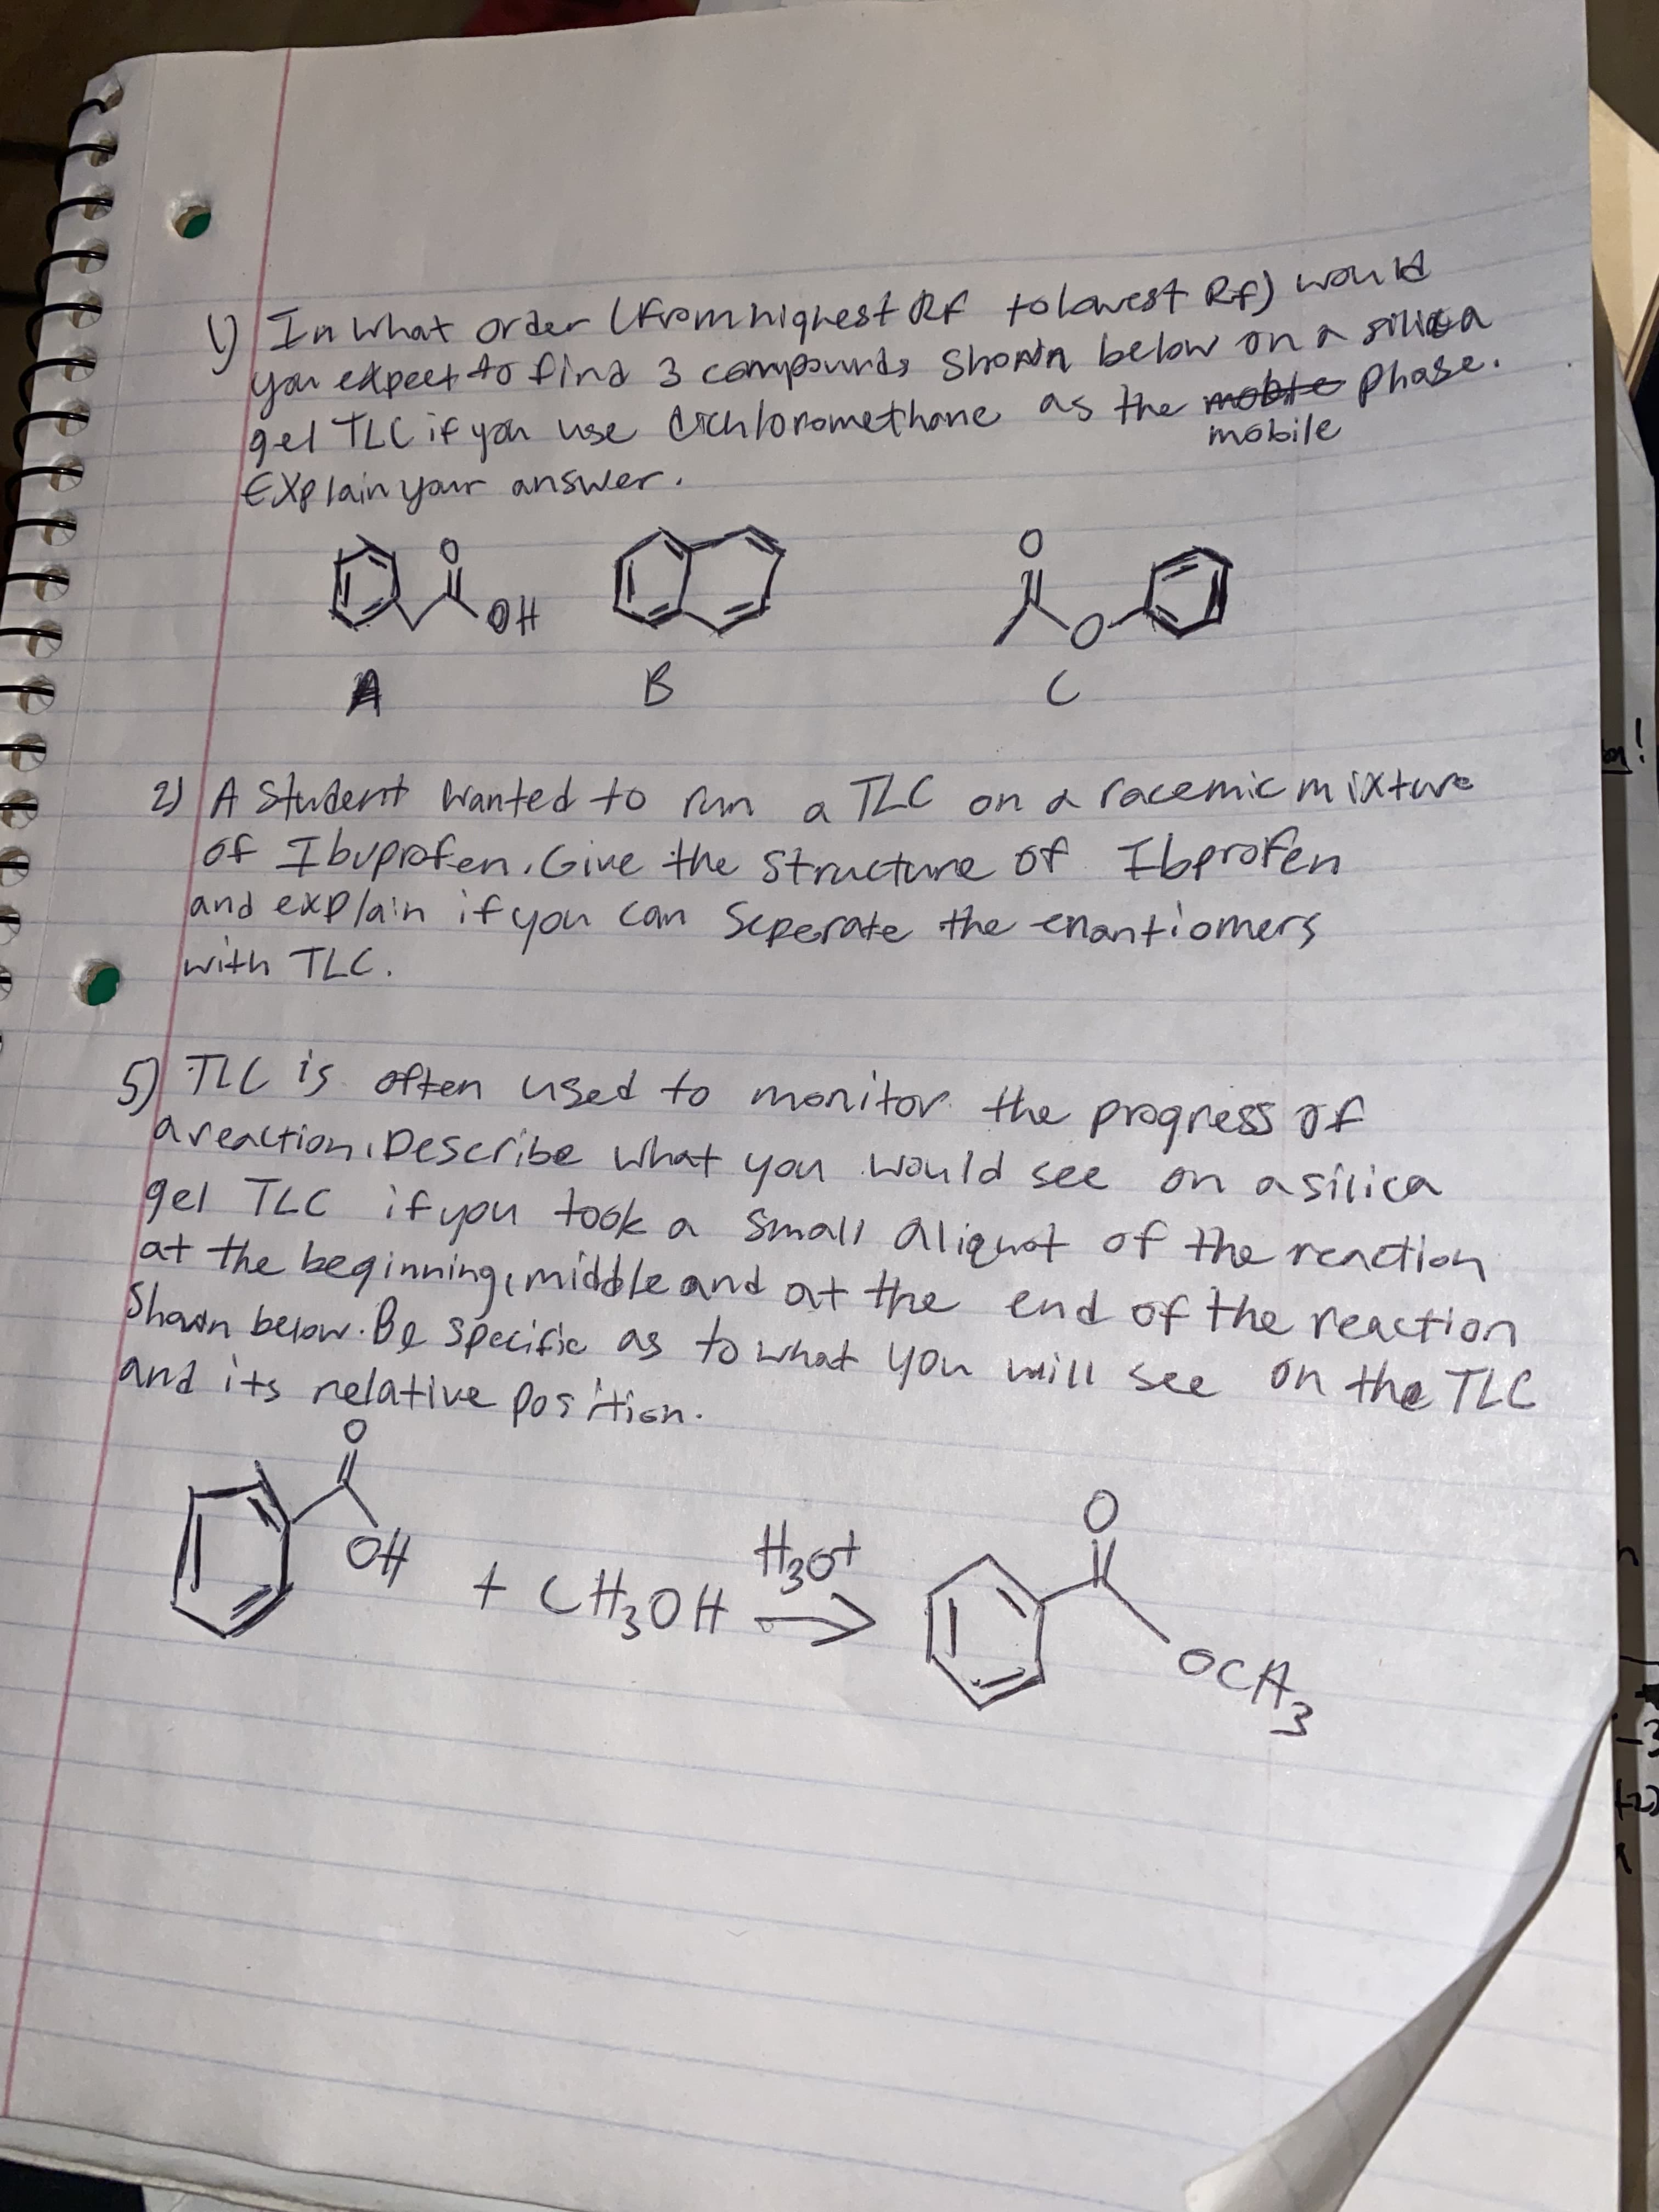 1) In what order (from highest Rf to lowest Rf) would
you expect to find 3 compounds shown below on a silica
gel TLC if you use dichloromethane as the mobile phase.
mobile
Explain your answer.
O
OH
O
O
A
B
C
2) A student wanted to run a TLC on a racemic mixture
of Ibuprofen. Give the structure of Ibprofen
and explain if you can seperate the enantiomers
with TLC.
5) TLC is often used to monitor the progress of
a reaction. Describe what you would see on a silica
gel TLC if you took a small aliquot of the reaction
at the beginning, middle and at the end of the reaction
shown below. Be specific as to what you will see on the TLC
and its relative position.
O
OH
+ CH3OH
H3O+
O
OCH3